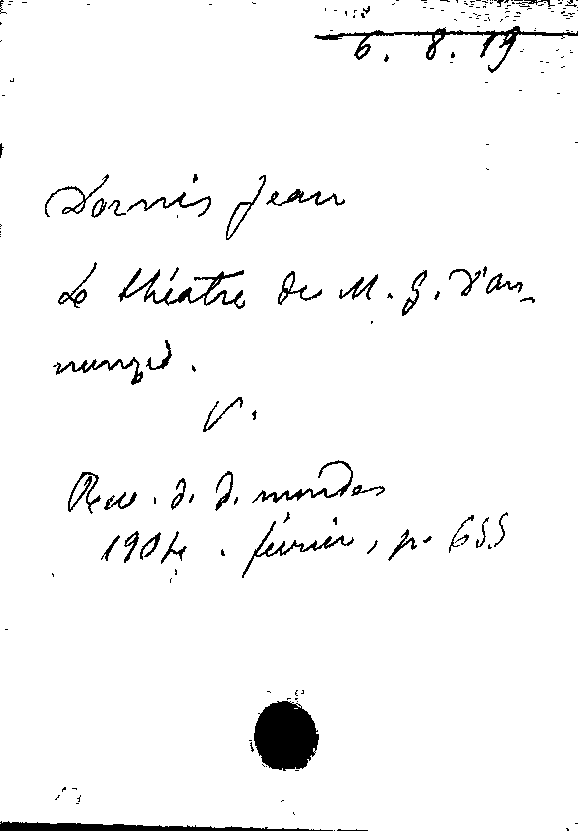 6. 8. 19
Dornis Jean
Le théatre de M. G. d'an-
nunzio.
V.
Revue. d. d. mondes
1904. février, p. 655